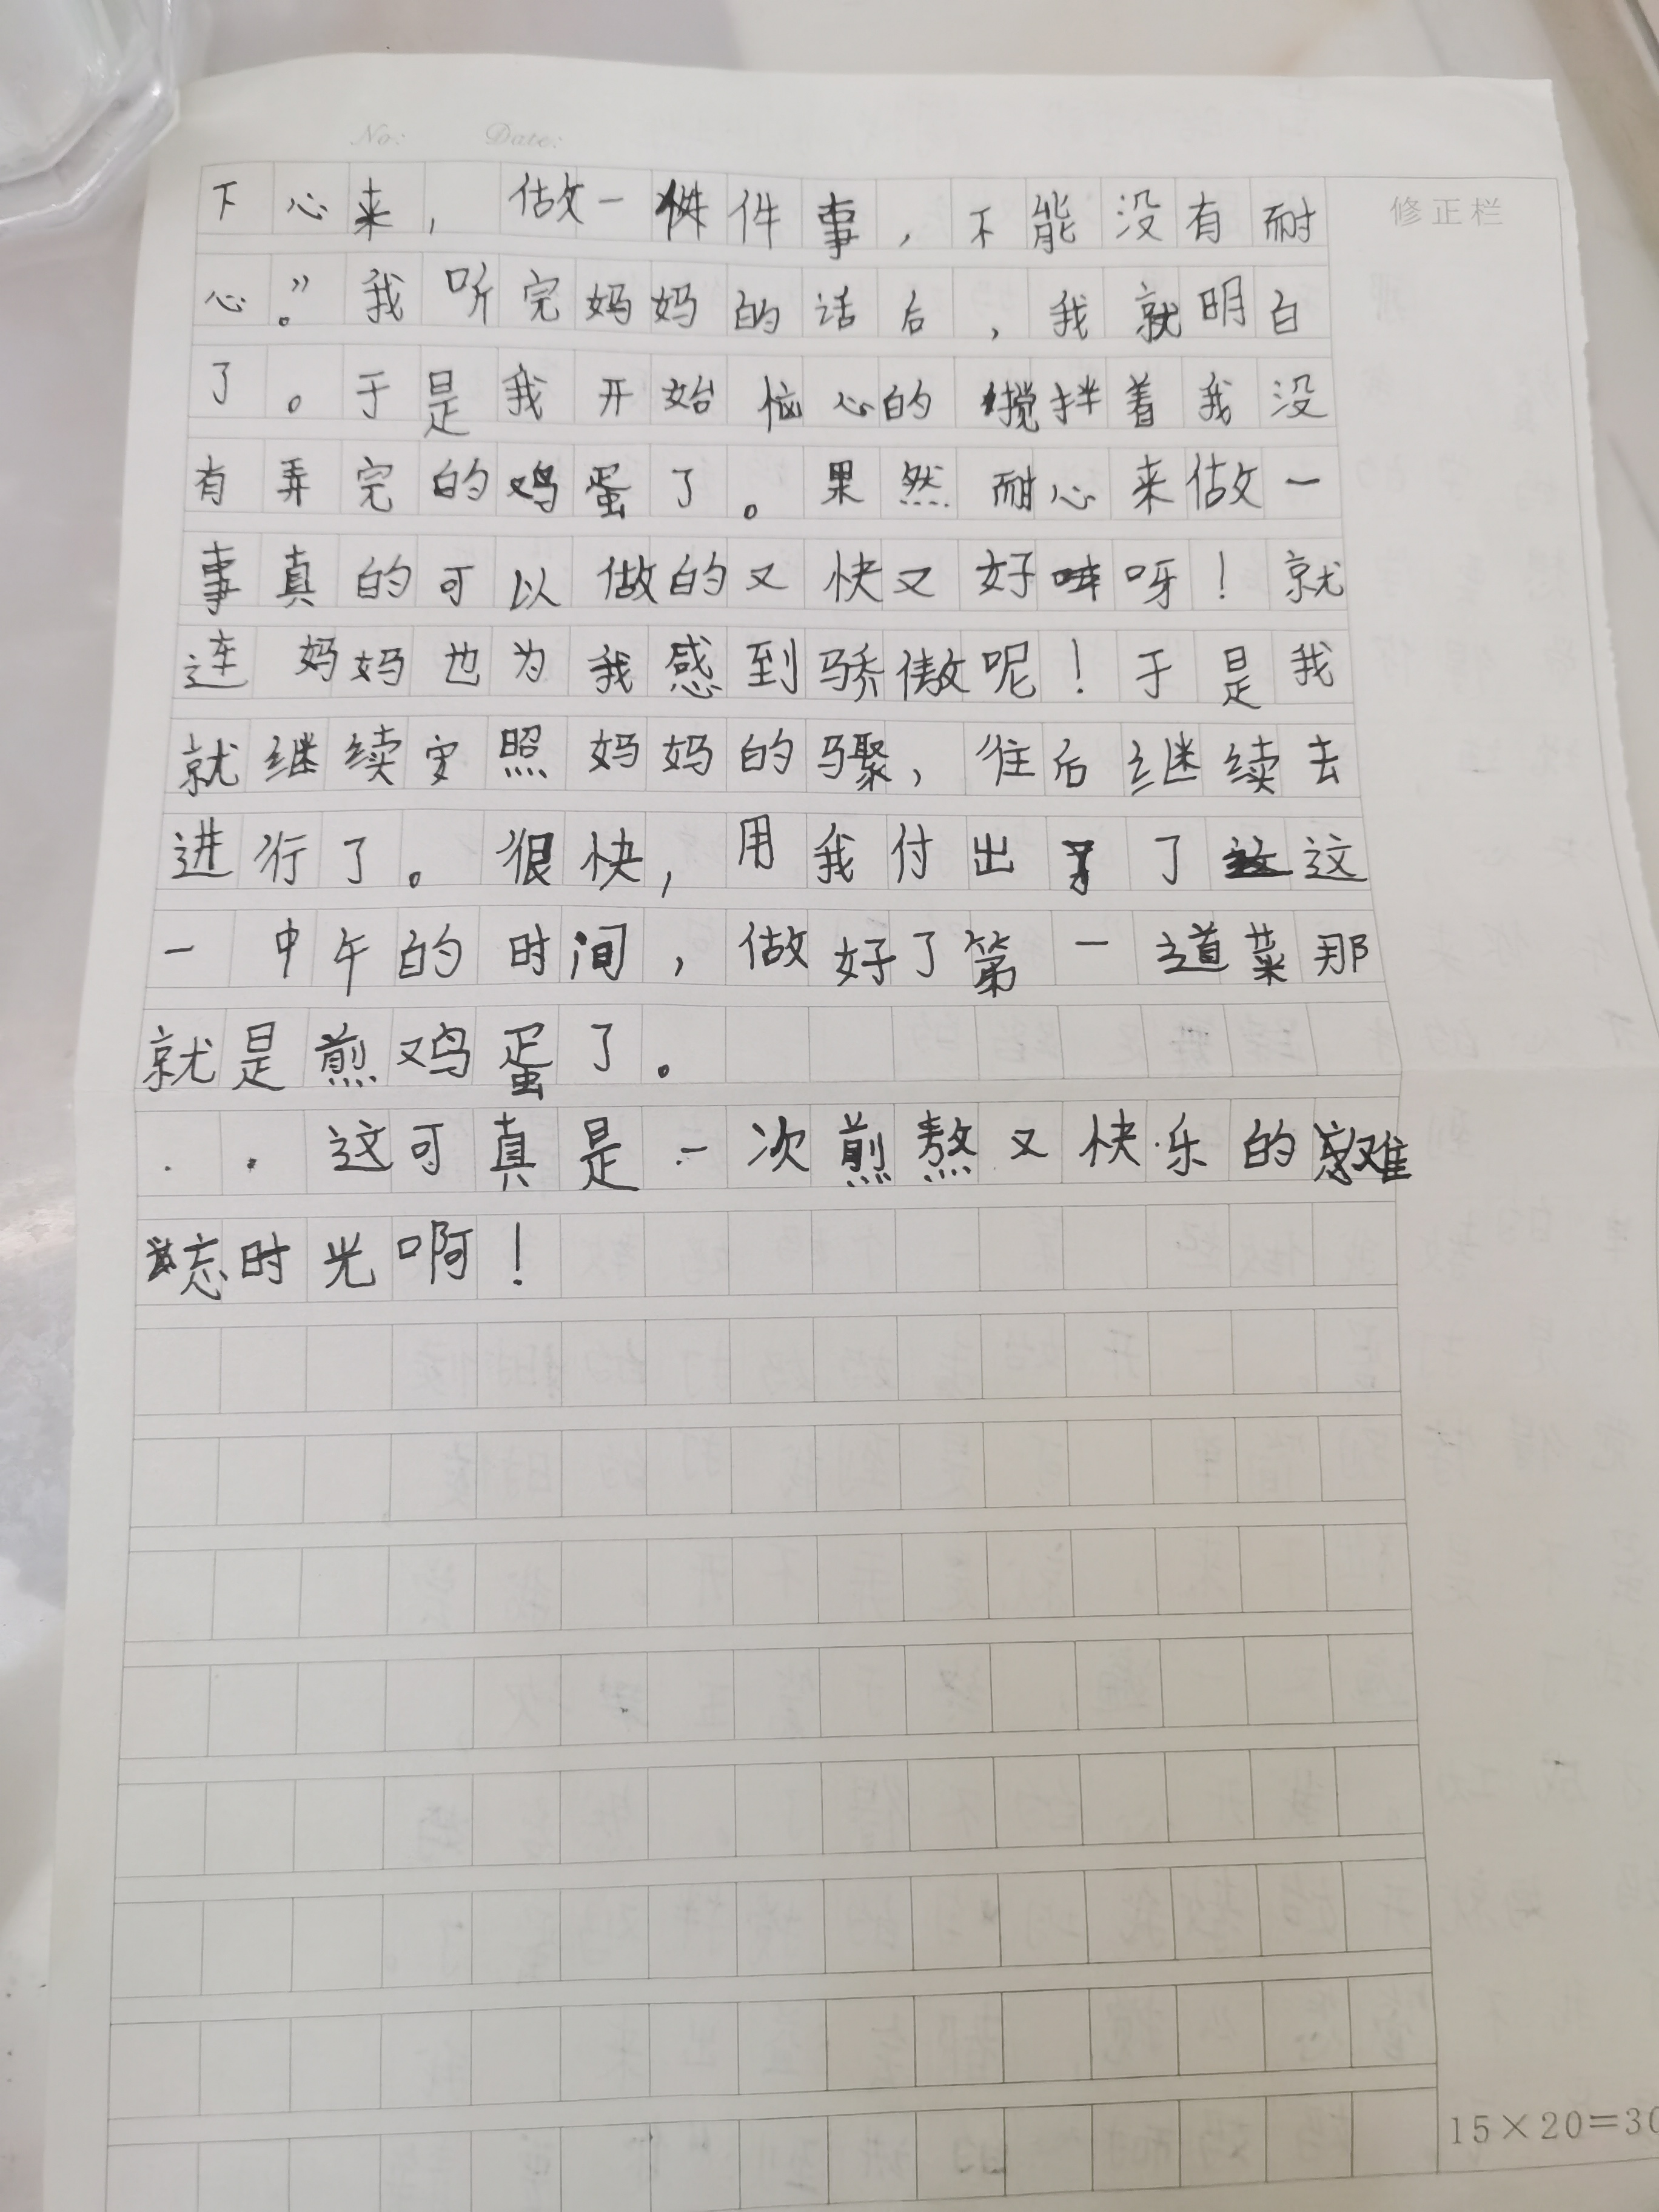 No: Date:
修正栏
下心来，做一件事，不能没有耐
心。”我听完妈妈的话后，我就明白
了。于是我开始恼心的搅拌着我没
有弄完的鸡蛋了。果然耐心来做一
事真的可以做的又快又好呀！就
连妈妈也为我感到骄傲呢！于是我
就继续安照妈妈的骤，往后继续去
进行了。很快，用我付出了这
一中午的时间，做好了第一道菜那
就是煎鸡蛋了。
这可真是一次煎熬又快乐的难
忘时光啊！
15×20=30